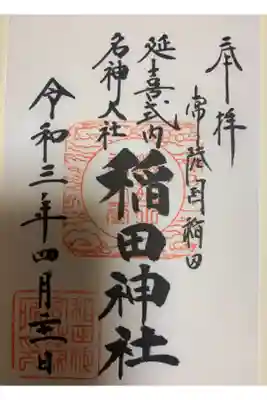 奉拝
常陸国稲田
延喜式内
名神大社
稲田神社
令和三年四月吉日